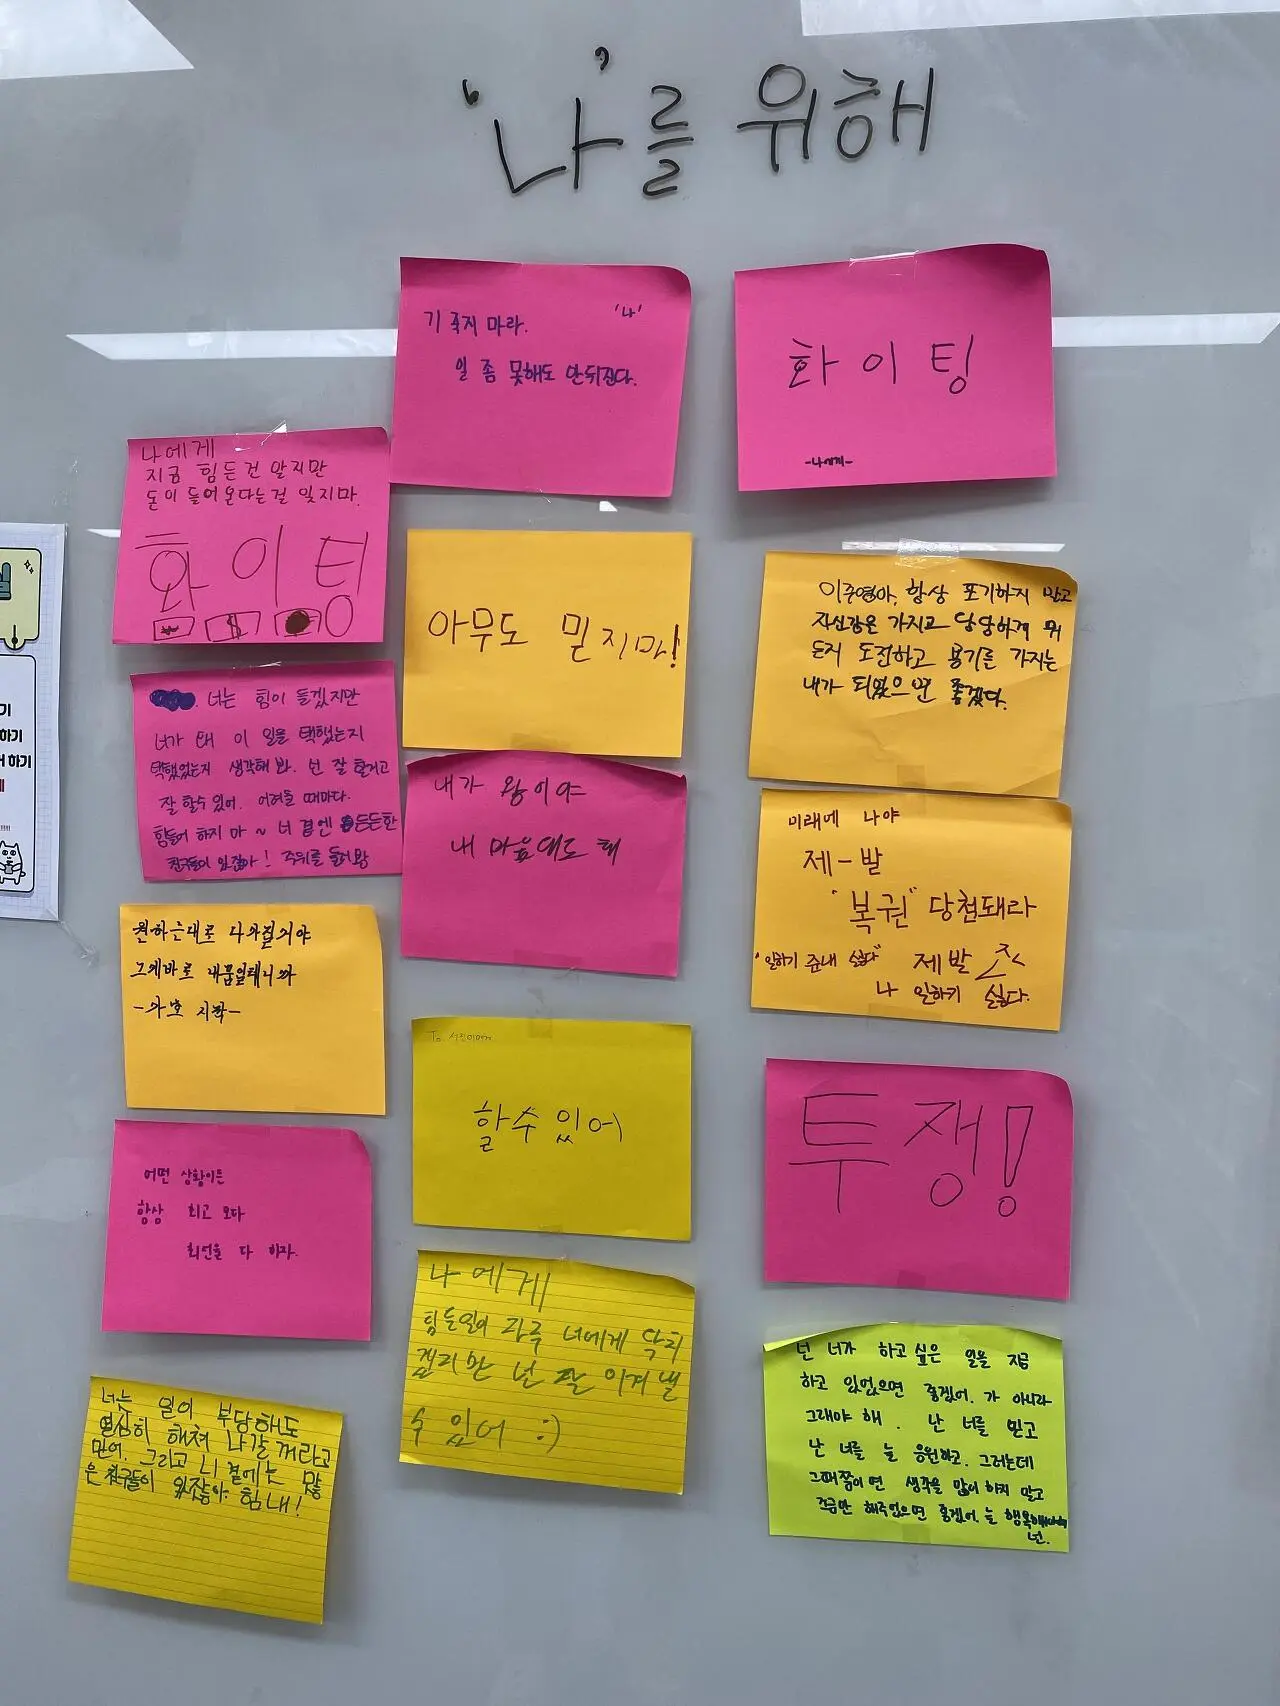 '나'를 위해
기 죽지 마라. '나'
일 좀 못해도 안뒤진다.
화이팅
-나에게-
나에게
지금 힘든건 알지만
돈이 들어온다는걸 잊지마.
화이팅
$
아무도 믿지마!
이주영아, 항상 포기하지 말고
자신감은 가지고 당당하게 뭐
든지 도전하고 용기를 가지는
내가 되었으면 좋겠다.
너는 힘이 들겠지만
너가 왜 이 일을 택했는지
택했었는지 생각해 봐. 넌 잘 할거고
잘 할수 있어. 어려울 때마다.
힘들어 하지 마 ~ 너 곁엔 든든한
친구들이 있잖아! 주위를 둘러봐
내가 왕이야
내 마음대로 해
미래에 나야
제-발
"복권" 당첨돼라
"일하기 준내 싫다" 제발
나 일하기 싫다.
원하는대로 나아갈거야
그게바로 내꿈일테니까
To. 서진이에게
할수있어
투쟁!
어떤 상황이든
항상 최고 보다
최선을 다 하자.
나에게
힘든일이 자주 너에게 닥치
겠지만 넌 잘 이겨 낼
수 있어 :)
넌 너가 하고싶은 일을 지금
하고 있었으면 좋겠어. 가 아니라
그래야 해. 난 너를 믿고
난 너를 늘 응원하고. 그러는데
그때쯤이면 생각을 많이 하지 말고
조금만 해주었으면 좋겠어. 늘
넌.
너는 일이 부당해도
열심히 해쳐 나갈꺼라고
믿어. 그리고 니 곁에는 많
은 친구들이 있잖아. 힘내!
기
하기
하기